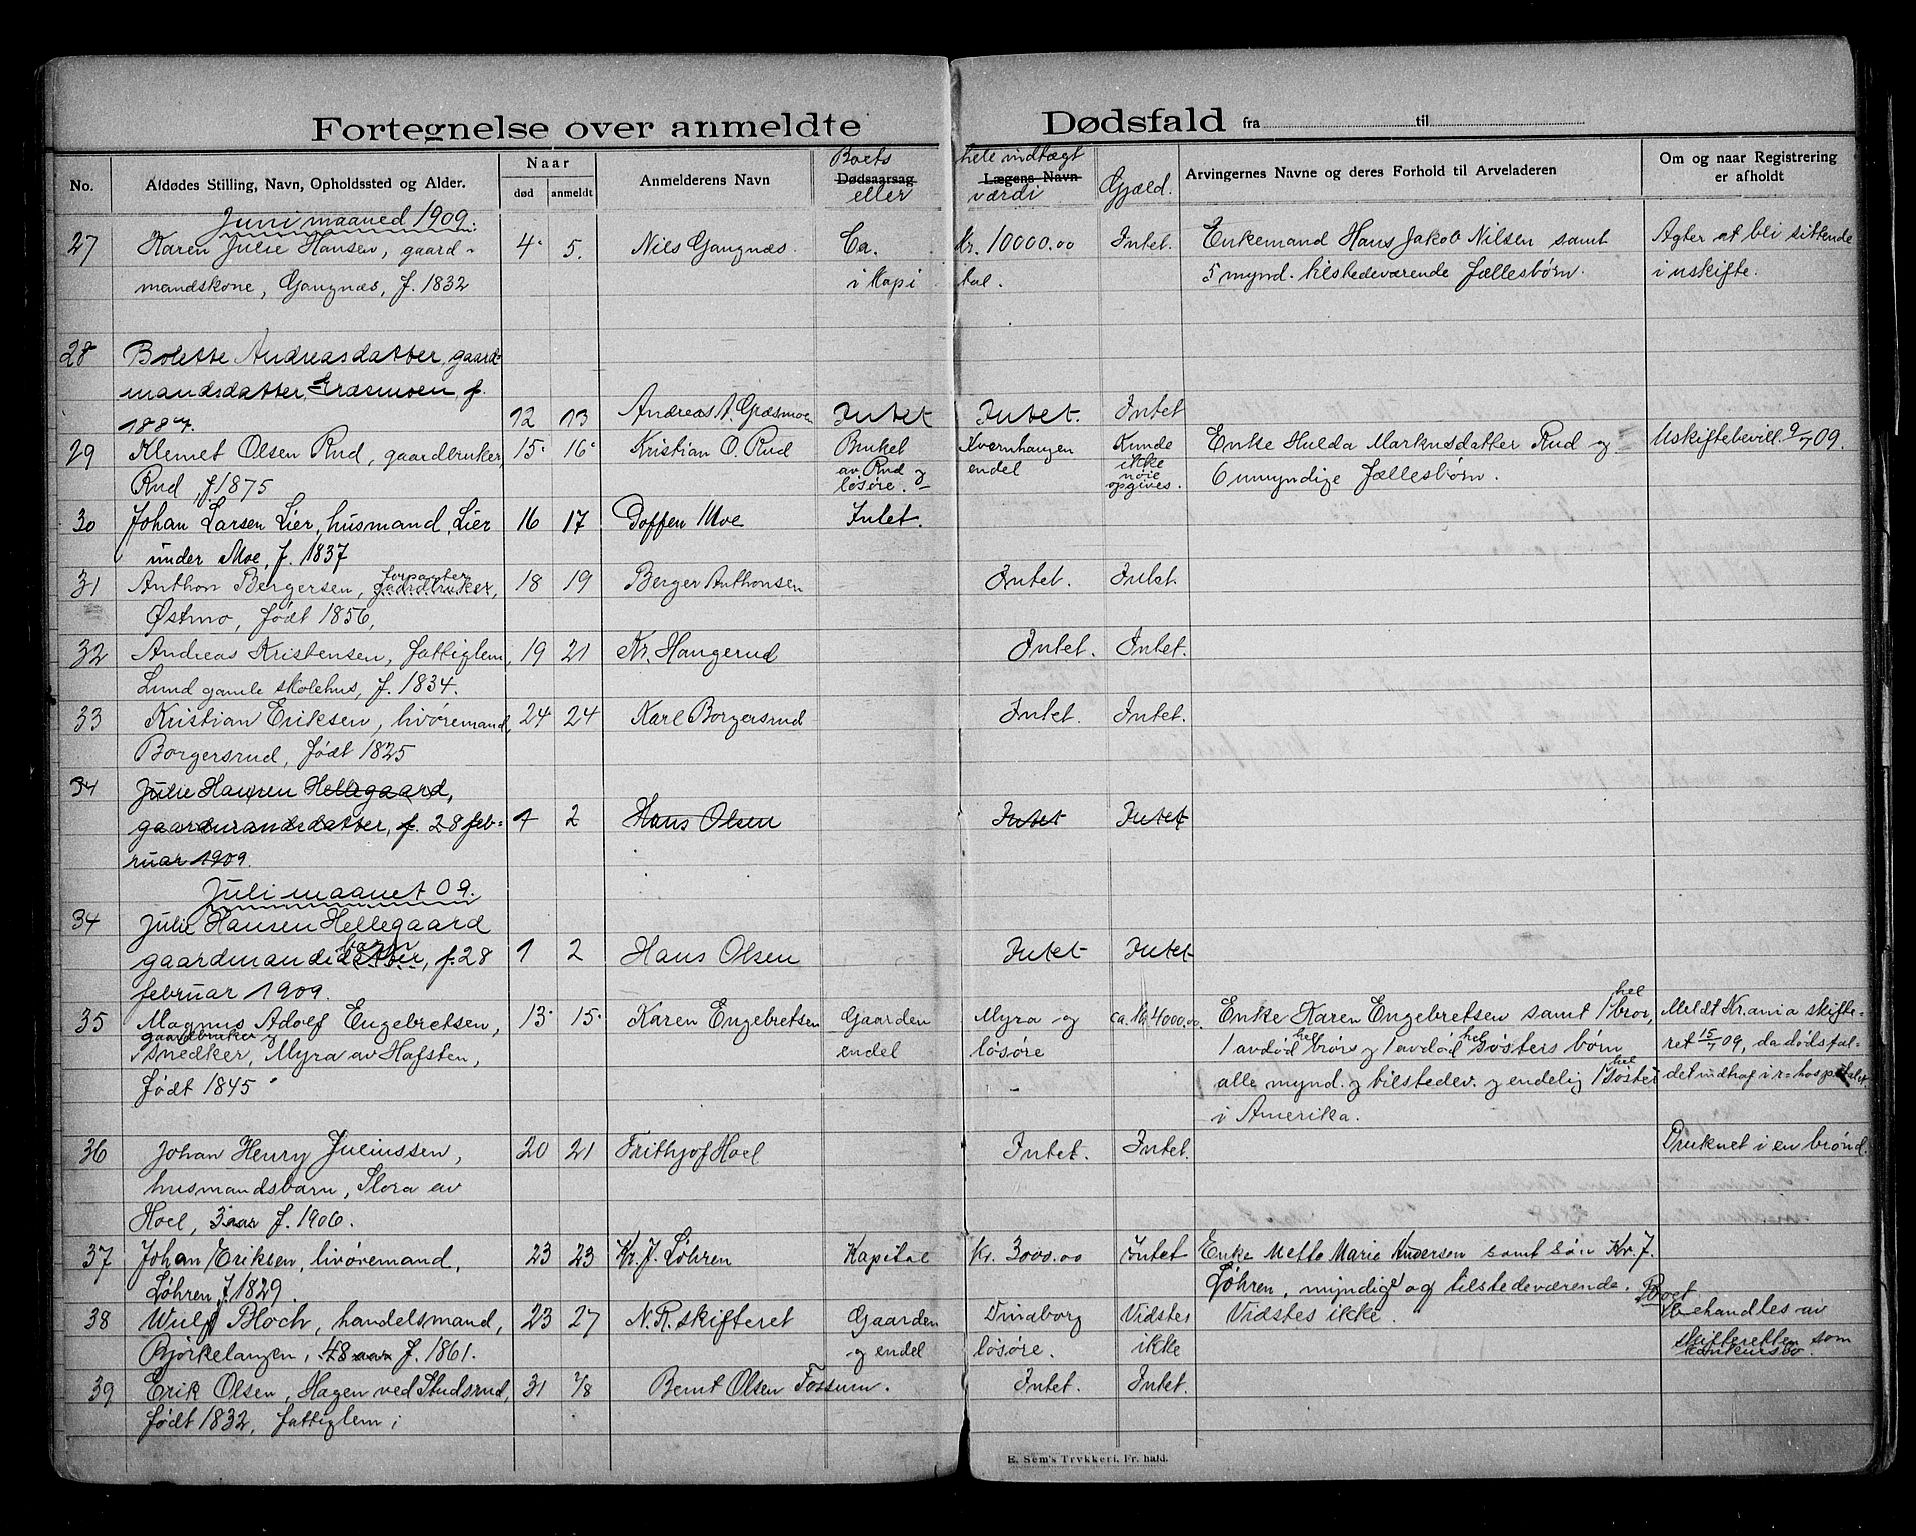 Fortegnelse over anmeldte Dødsfald fra til
No. Afdødes Stilling, Navn, Opholdssted og Alder. Naar død anmeldt Anmelderens Navn Boets Dødsaarsag eller hele indtægt Lægens Navn værdi Gjæld. Arvingernes Navne og deres Forhold til Arveladeren Om og naar Registrering er afholdt
Juni maaned 1909.
27 Karen Julie Hansen, gaard- 4. 5. Nils Gangnæs. Ca. Kr. 10000.00 Intet. Enkemand Hans Jakob Nilsen samt Agter at bli sittende
mandskone, Gangnæs, f. 1832 i Kapi tal. 5 mynd. tilstedeværende fællesbørn. i uskifte.
28 Bolette Andreasdatter, gaard-
mandsdatter, Græsmoen f.
1887. 12 13 Andreas A. Græsmoen Intet Intet. Intet
29 Klemet Olsen Rud, gaardbruker, 15. 16. Kristian O. Rud Bruket Kvernhaugen Kunde Enke Hulda Markusdatter Rud og Uskiftebevill. 9/7 09.
Rud, f. 1875 av Rud og løsøre. endel ikke nøie opgives. 6 umyndige fællesbørn.
30 Johan Larsen Lier, husmand, Lier 16 17 Doffen Moe Intet.
under Moe, f. 1837
31 Anthon Bergersen, forpagter gaardbruker, 18 19 Berger Anthonsen Intet. Intet.
Østmo, født 1856,
32 Andreas Kristensen, fattiglem, 19 21 Kr. Haugerud Intet. Intet.
Lund gamle skolehus, f. 1834.
33 Kristian Eriksen, livøremand, 24 24 Karl Borgersrud Intet. Intet.
Borgersrud, født 1825
34 Julie Hansen Hellegaard,
gaardmandsdatter, f. 28 feb- 1 2 Hans Olsen Intet Intet
ruar 1909.
Juli maanet 09.
34 Julie Hansen Hellegaard
gaardmandsdatter barn, f. 28 1 2 Hans Olsen Intet Intet
februar 1909.
35 Magnus Adolf Engebretsen, 13. 15. Karen Engebretsen Gaarden Myra og ca. kr 4000.00 Enke Karen Engebretsen samt 1 hel bror, Meldt Kr.ania skifte-
gaardbruker og
snedker, Myra av Hafsten, endel løsøre 1 avdød hel brors og 1 avdød hel søsters børn ret 15/7 09, da dødsfal-
født 1845 alle mynd. og tilstedev. og endelig 1 hel søster det indtraf i r=hospitalet.
i Amerika.
36 Johan Henry Juliussen, 20 21 Frithjof Hoel Intet. Intet. Druknet i en brønd.
husmandsbarn, Flora av
Hoel, 3 aar f. 1906.
37 Johan Eriksen, livøremand, 23 23 Kr. J. Løhren Kapital Kr. 3000.00 Intet Enke Mette Marie Andersen samt søn Kr. J.
Løhren, f. 1829. Løhren, myndige og tilstedeværende.
38 Wulf Bloch, handelsmand, 23 27 N. R. skifteret Gaarden Vinaborg Vidstes Vidstes ikke. Boet behandles av
Bjørkelangen, 48 aar f. 1861. og endel løsøre. ikke skifteretten som konkursbo.
39 Erik Olsen, Hagen ved Studsrud, 31 2/8 Bernt Olsen Fossum. Intet. Intet.
født 1832, fattiglem
E. Sem's Trykkeri, Fr. hald.